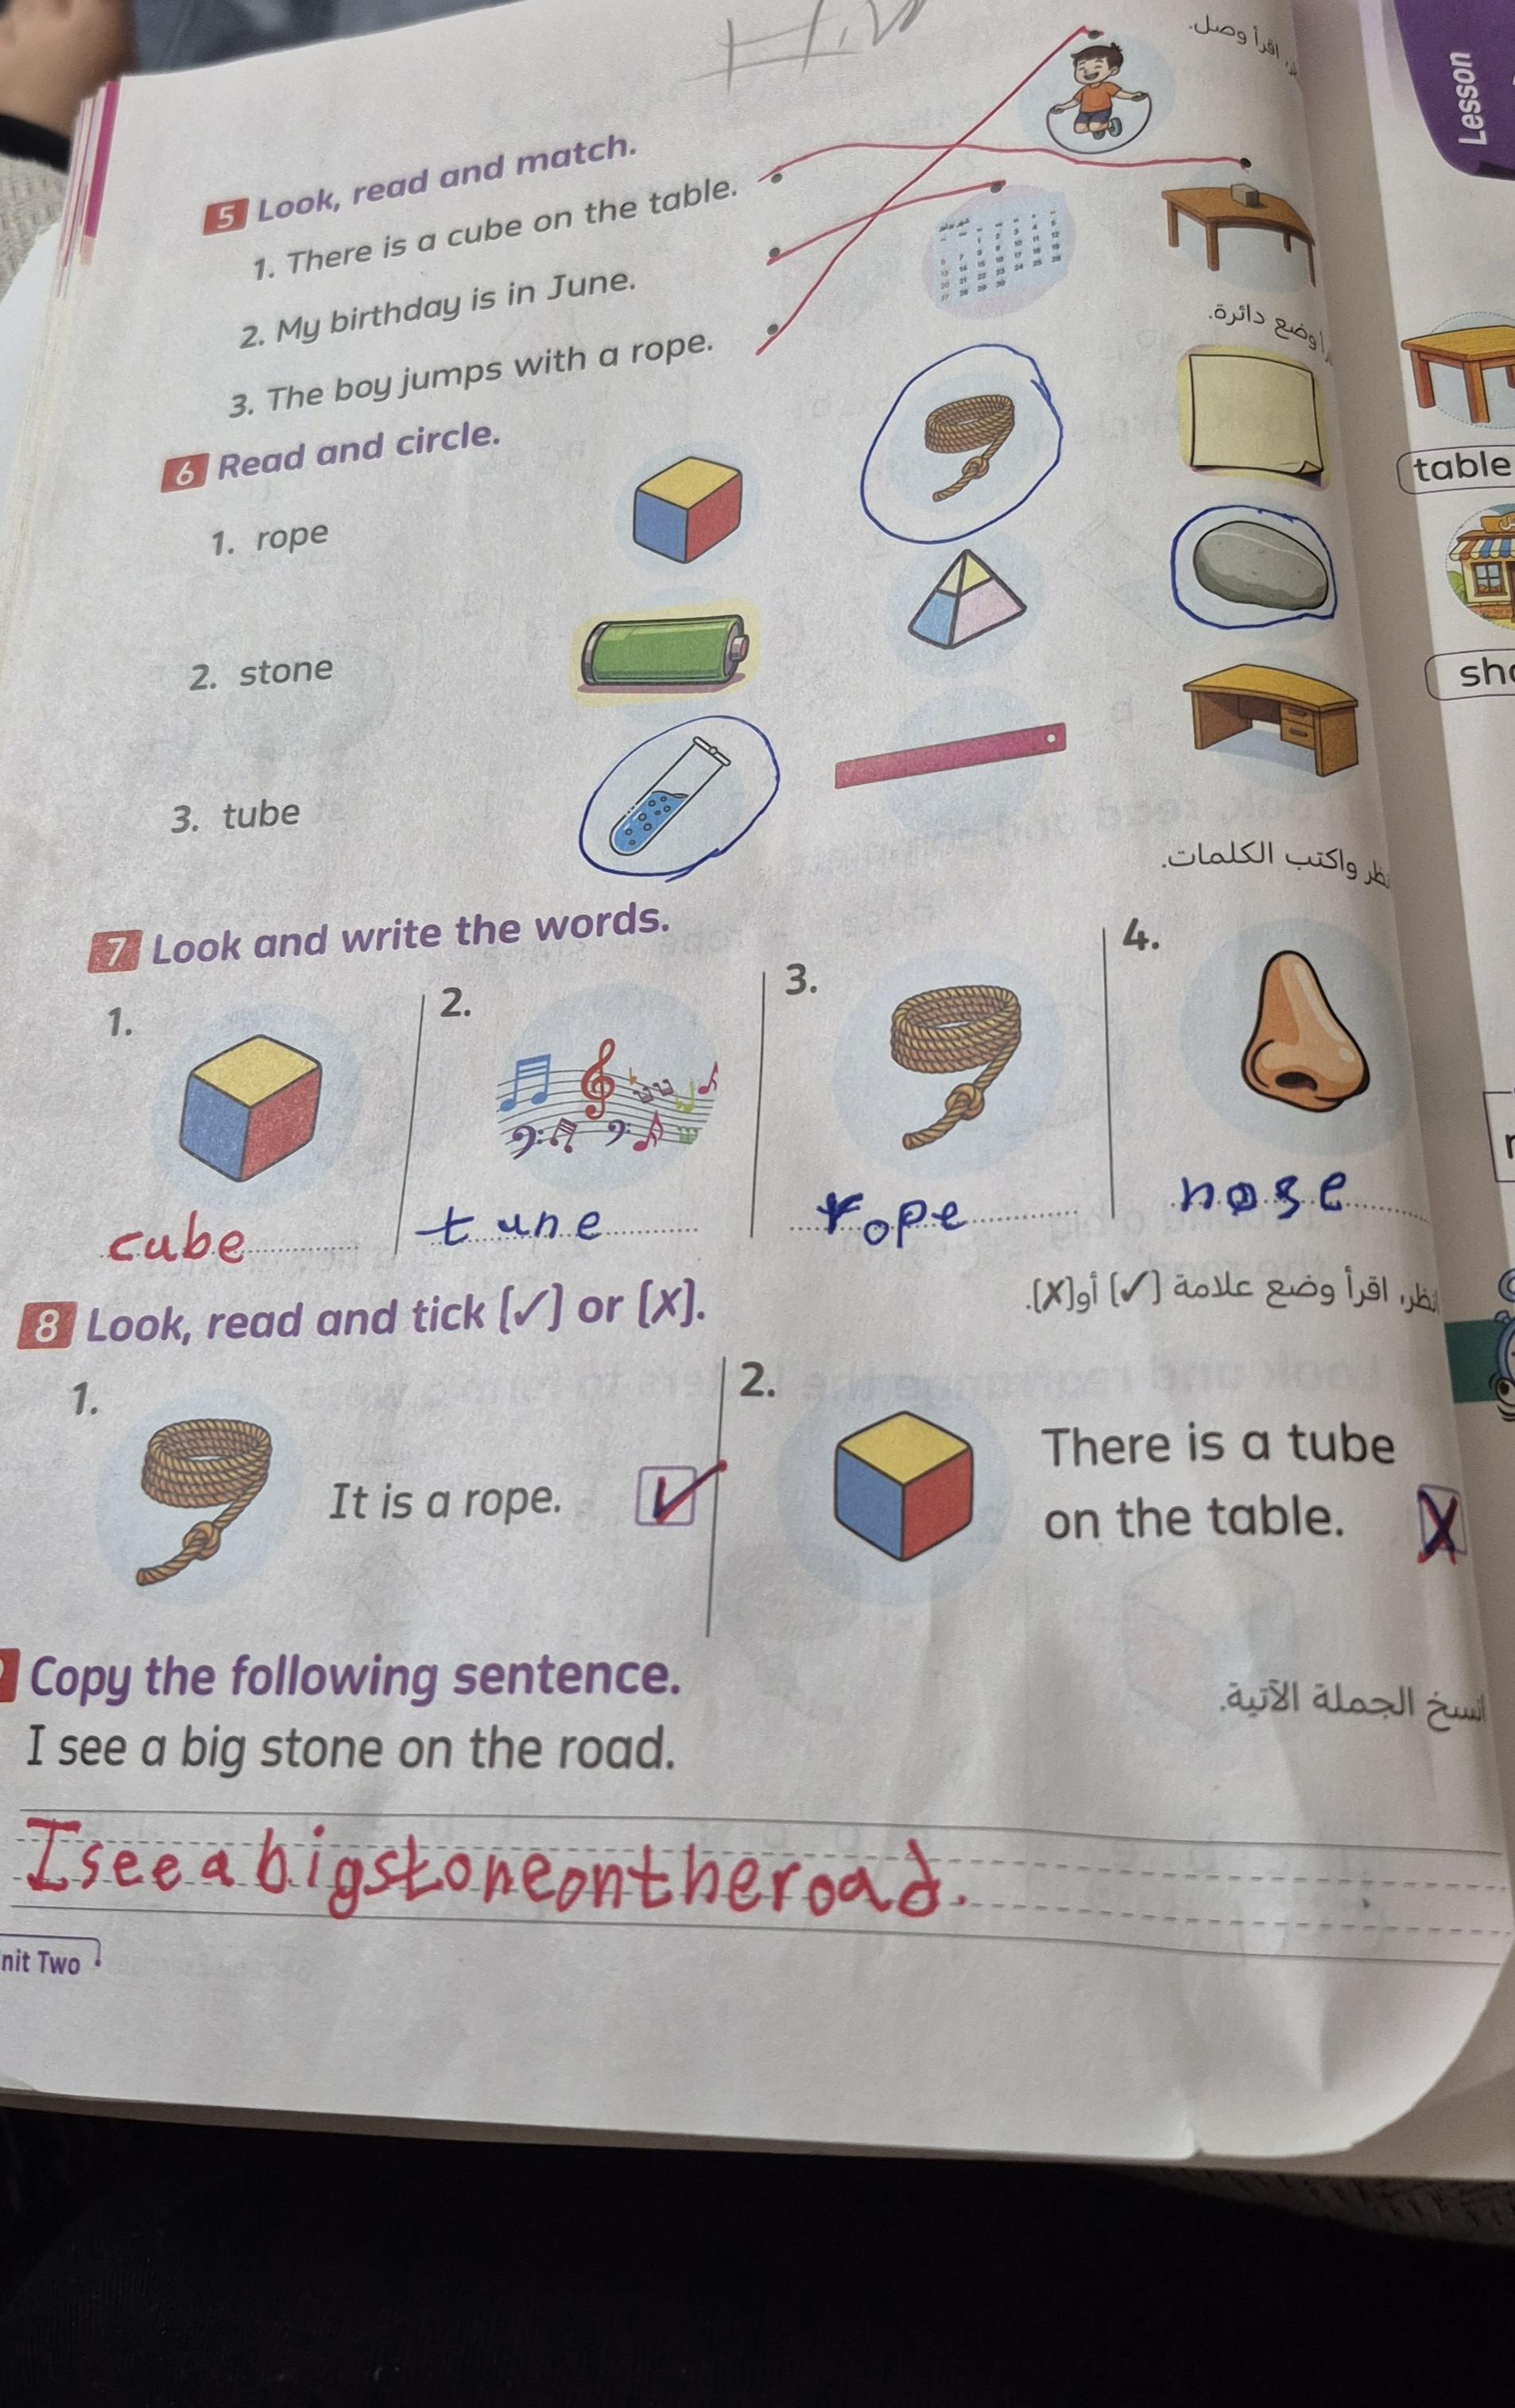 H.W
5 Look, read and match.
اقرأ وصل.
1. There is a cube on the table.
2. My birthday is in June.
3. The boy jumps with a rope.
6 Read and circle.
وضع دائرة.
1. rope
2. stone
3. tube
7 Look and write the words.
واكتب الكلمات.
1.
2.
3.
4.
cube
tune
rope
nose
8 Look, read and tick [✓] or [X].
انظر، اقرأ وضع علامة [✓] أو [X].
1.
It is a rope.
✓
2.
There is a tube
on the table.
X
Copy the following sentence.
انسخ الجملة الآتية.
I see a big stone on the road.
I see a big stone on the road.
nit Two
Lesson
table